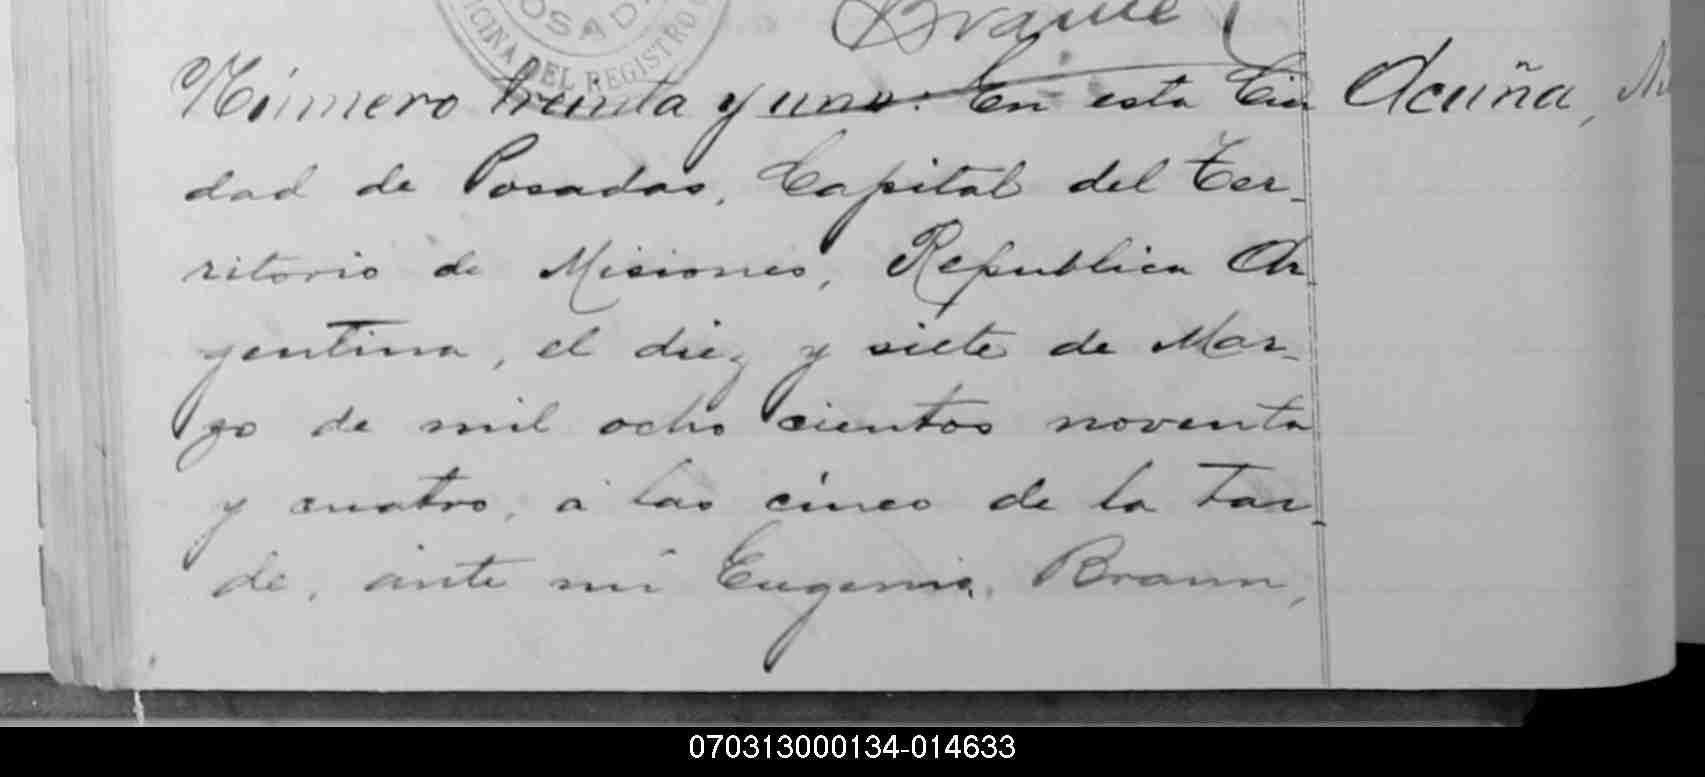 POSADAS
OFICINA DEL REGISTRO
Braun
Número treinta y uno: En esta Ciu
dad de Posadas, Capital del Ter-
ritorio de Misiones, Republica Ar-
gentina, el diez y siete de Mar-
zo de mil ocho cientos noventa
y cuatro, á las cinco de la tar-
de, ante mi Eugenio Braun,
Acuña,
070313000134-014633